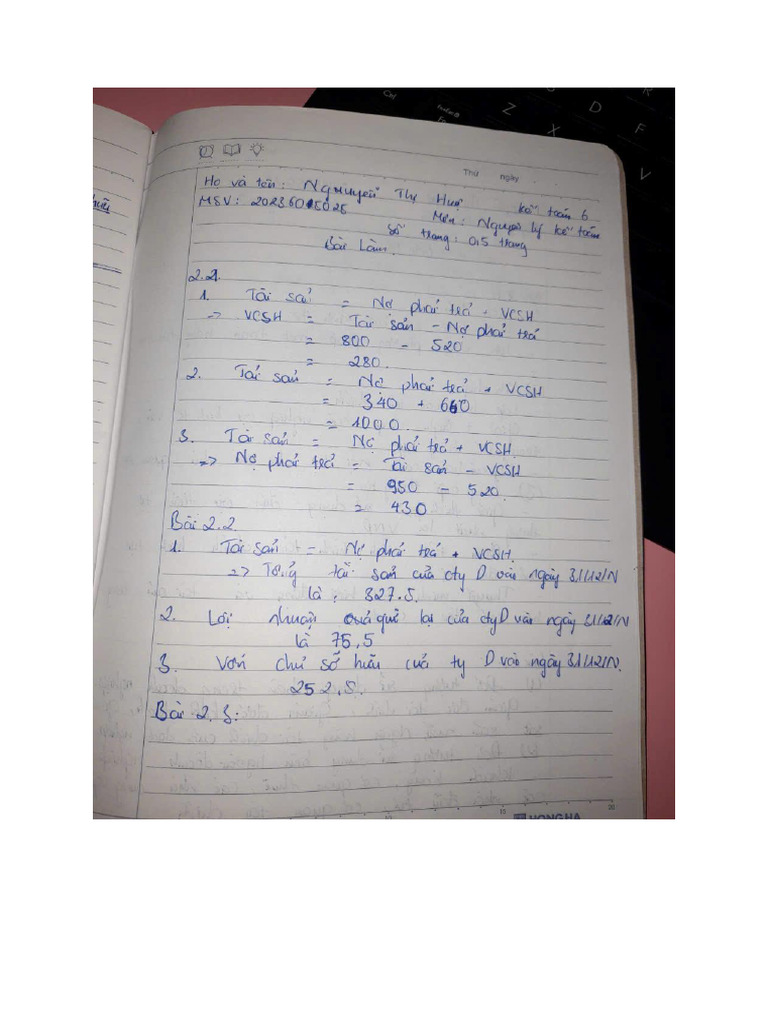 Thứ ngày
Họ và tên: Nguyễn Thị Huệ Kế toán 6
MSV: Môn: Nguyên lý kế toán
Số trang: 0,5 trang
Bài Làm
2.1.
1. Tài sản = Nợ phải trả + VCSH
=> VCSH = Tài sản - Nợ phải trả
= 800 - 520
= 280.
2. Tài sản = Nợ phải trả + VCSH
= 340 + 660
= 1000.
3. Tài sản = Nợ phải trả + VCSH.
=> Nợ phải trả = Tài sản - VCSH
= 950 - 520.
= 430.
Bài 2.2
1. Tài sản = Nợ phải trả + VCSH
=> Tổng tài sản của cty D vào ngày 31/12/N
là: 327.5.
2. Lợi nhuận lại của cty D vào ngày 31/12/N
là 75,5
3. Vốn chủ sở hữu của ty D vào ngày 31/12/N.
252,5.
Bài 2.3:
HONG HA